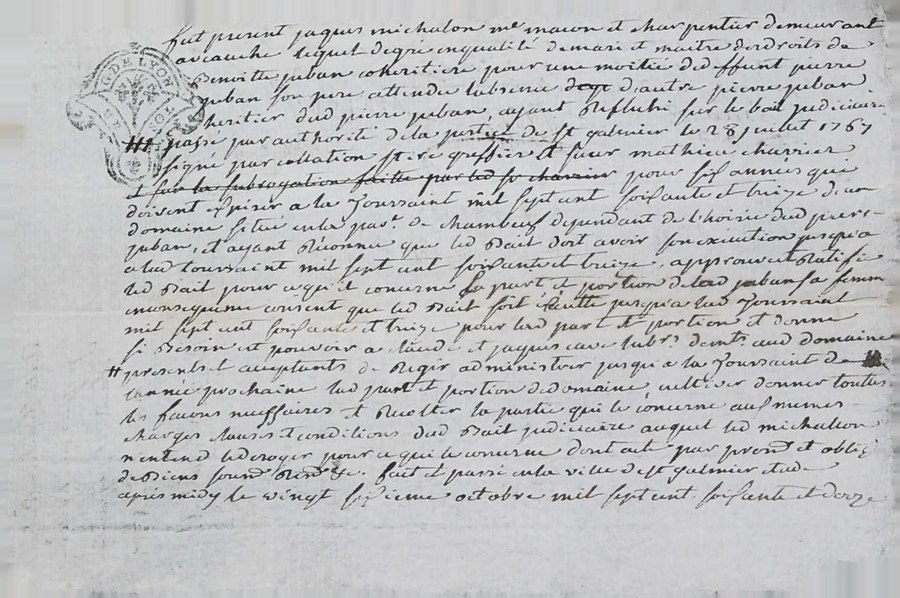 G. DE LYON
fut present jaques michalon me macon et charpentier demeurant
aveauche lequel degre enqualité demari et maitre desdroits de
benoitte juban coheritiere pour une moitié dedeffunt pierre
juban son pere attendu labsence dautre pierre juban
heritier dud pierre juban, ayant Reflechi sur le bail judiciaire
passé par authorité dela justice de st galmier le 28 juillet 1767
signé par collation greffier et sieur mathieu charrier
et sur la subrogation faitte par led sr charrier pour six années qui
doivent expirer a la Toussaint mil sept cent soixante et treize d'un
domaine situé enla par. de chambeuf dependant de l'hoirie dud pierre
juban, et ayant Reconnu que led Bail doit avoir son execution jusqu'a
alad toussaint mil sept cent soixante et treize, approuve et Ratifie
led Bail pour ce qui concerne la part et portion delad juban sa femme
enconsequence consent que led Bail soit jusqu'a lad Toussaint
mil sept cent soixante et treize pour lad part et portion et donne
si Besoin est pouvoir a claude et jaques dem. aud domaine
presents et acceptants de Regir administrer jusqu'a la Toussaint de
lannée prochaine lad part et portion dedomaine cultiver donner touttes
les facons necessaires et Recolter la partie qui le concerne aux memes
charges clauses et conditions dud Bail judiciaire auquel led michalon
n'entend rien deroger pour ce qui le concerne dont acte par prom. et oblig.
deBiens soum. Ren. &c. fait et passé enla ville dest galmier etude
apres midy le vingt sixieme octobre mil sept cent soixante et douze